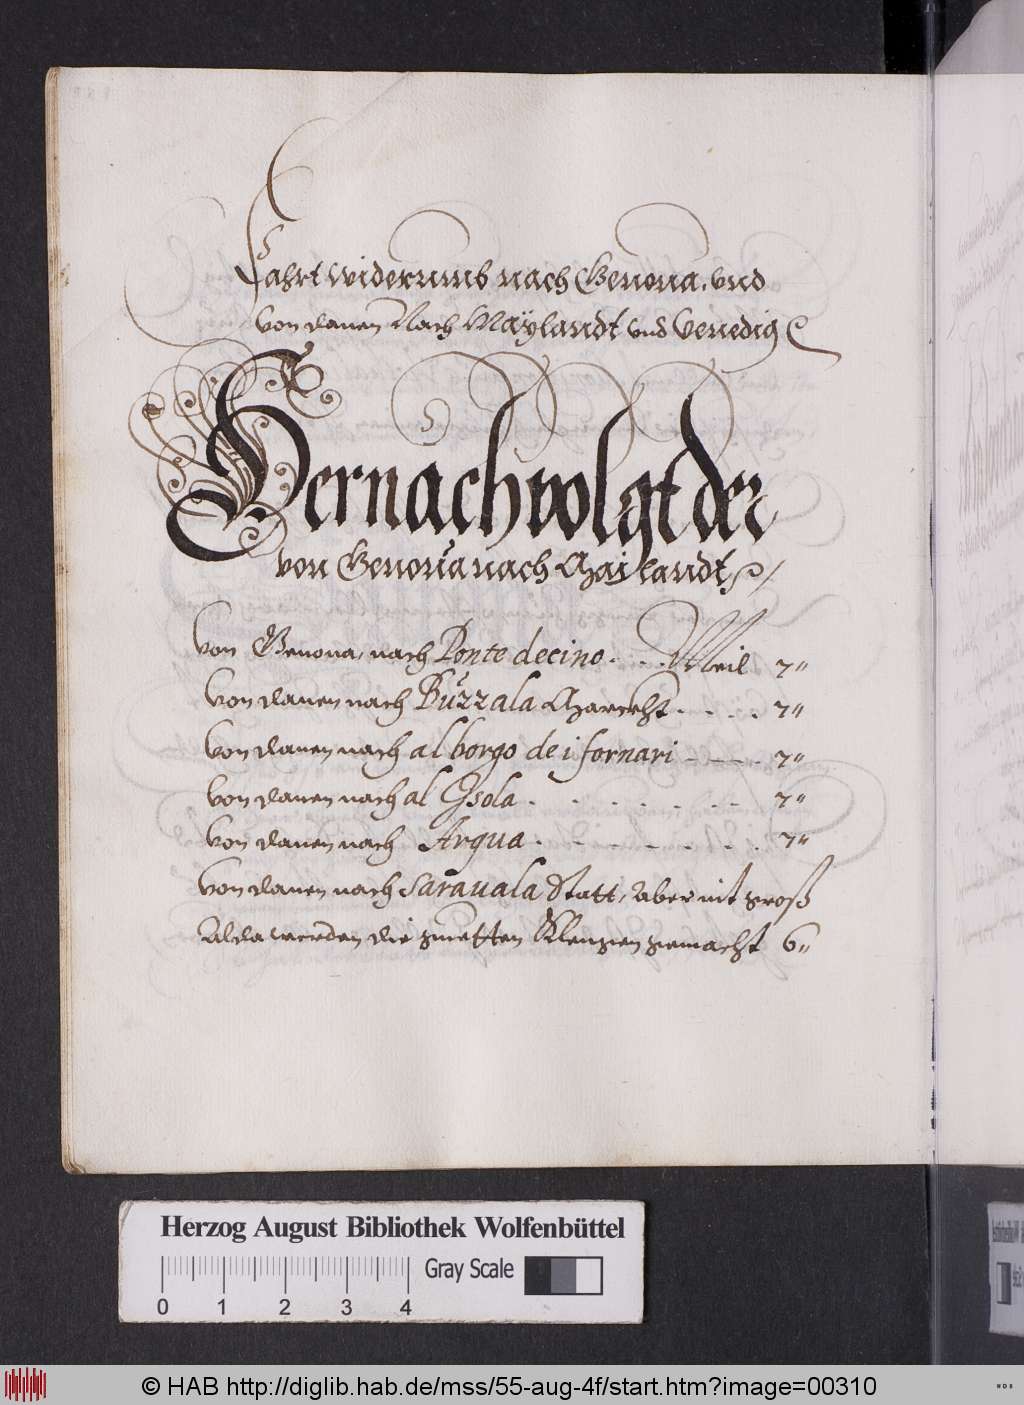 Fahrt widerumb nach Genoua, vnd
von danen Nach Maÿlandt vnd Venedig
Hernachvolgt der
von Genoua nach Maylandt
Von Genoua, nach Ponte decino . . . Meil 7"
Von danen nach Buzzala Marckht . . . . 7"
Von danen nach al borgo de i fornari - - - . 7"
Von danen nach al Isola . . . . . . - - 7"
Von danen nach Arqua . - - - - . . 7"
Von danen nach Sarauala Statt, aber nit groß
Alda werden die gueten Klengen gemacht 6"
Herzog August Bibliothek Wolfenbüttel
Gray Scale
0 1 2 3 4
© HAB http://diglib.hab.de/mss/55-aug-4f/start.htm?image=00310